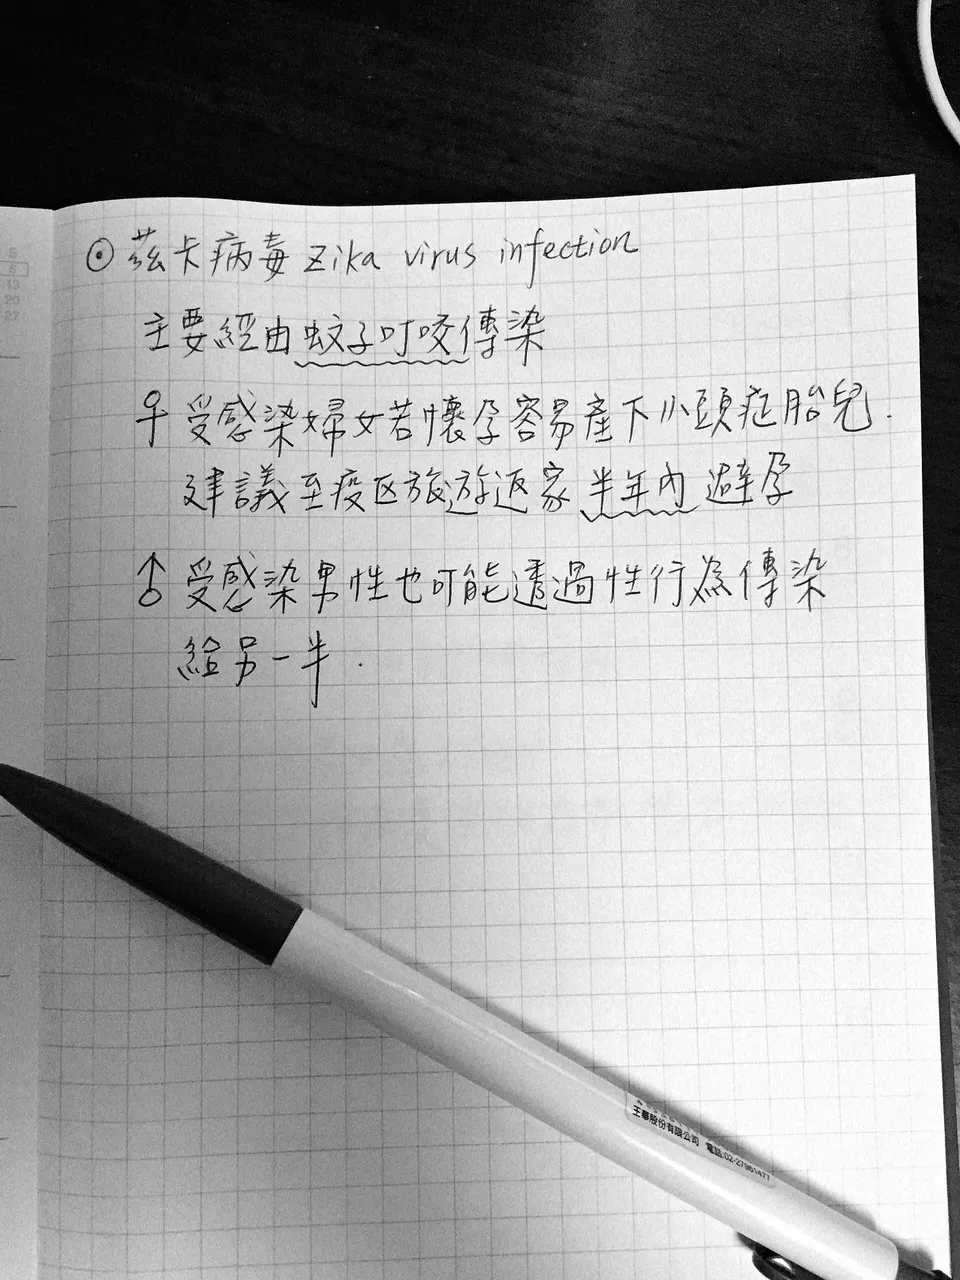 ⊙ 茲卡病毒 Zika virus infection
主要經由蚊子叮咬傳染
♀ 受感染婦女若懷孕容易產下小頭症胎兒.
建議至疫区旅遊返家半年內避孕
♂ 受感染男性也可能透過性行為傳染
給另一半.
S
6
13
20
27
王華股份有限公司 電話:02-27961477